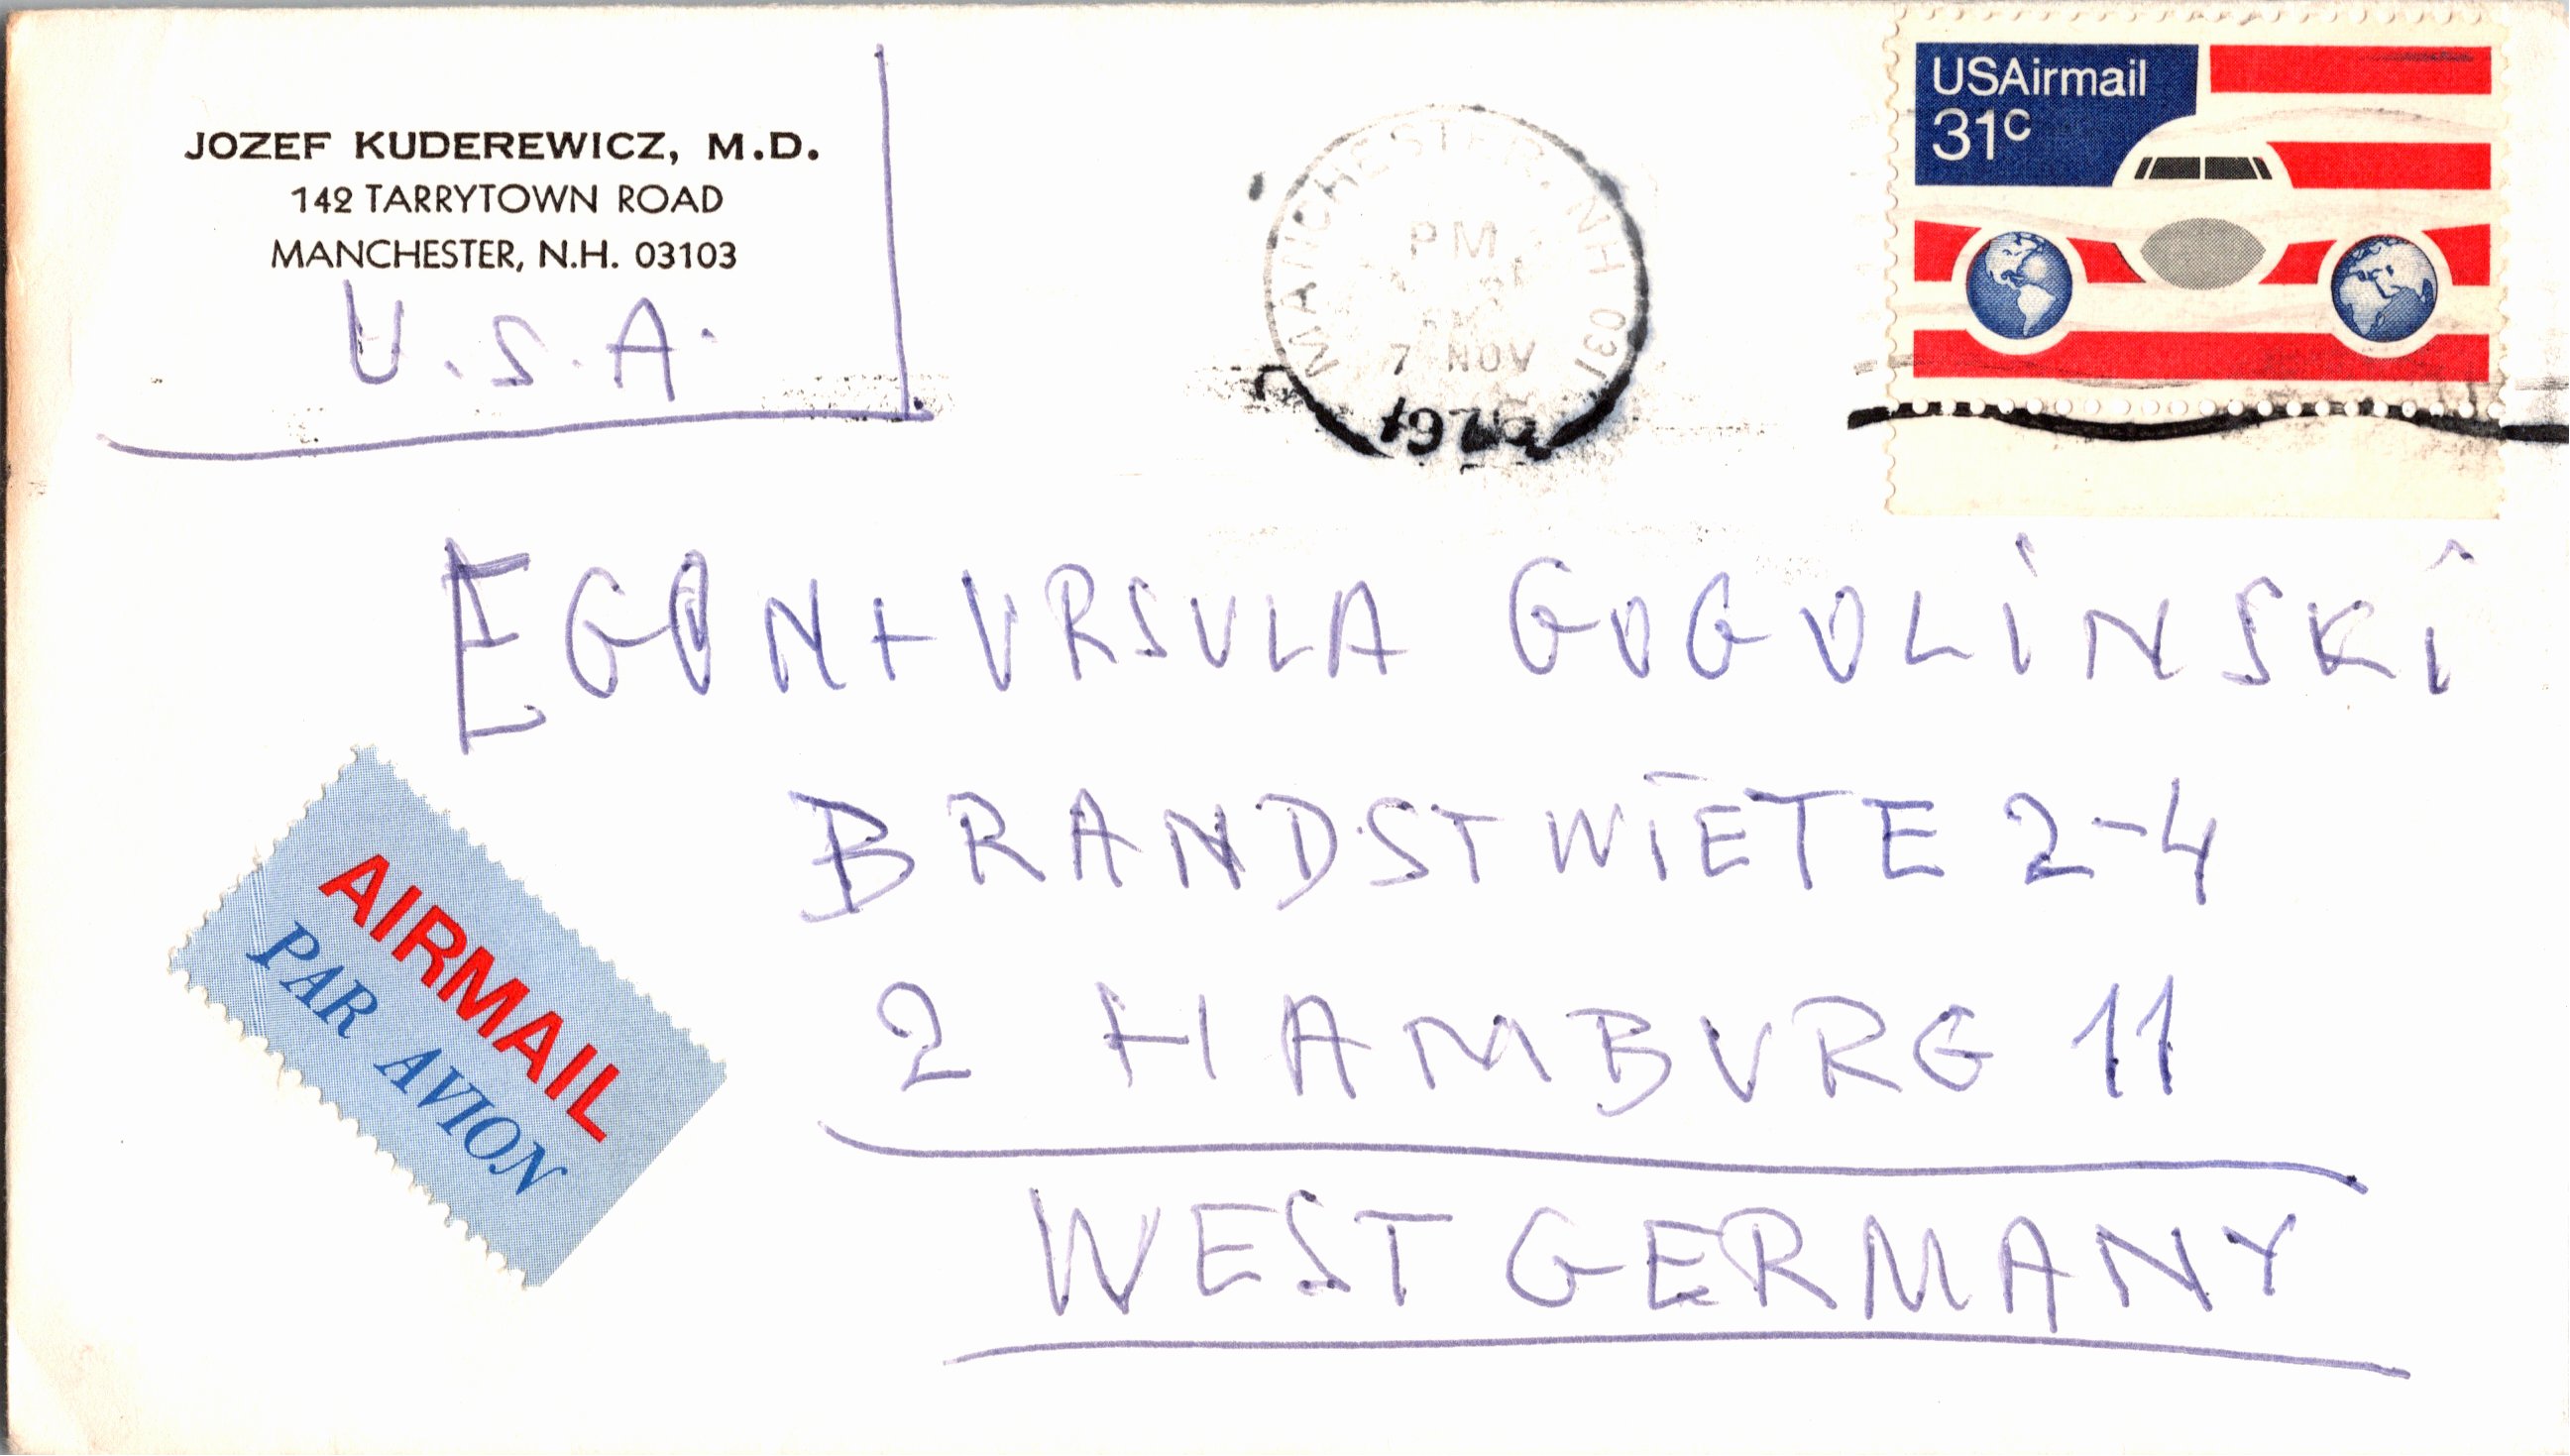 JOZEF KUDEREWICZ, M.D.
142 TARRYTOWN ROAD
MANCHESTER, N.H. 03103
U.S.A.
MANCHESTER, NH 031
PM
7 NOV
USAirmail
31c
EGON + URSULA GOGOLINSKI
BRANDSTWIETE 2-4
2 HAMBURG 11
WEST GERMANY
AIRMAIL
PAR AVION